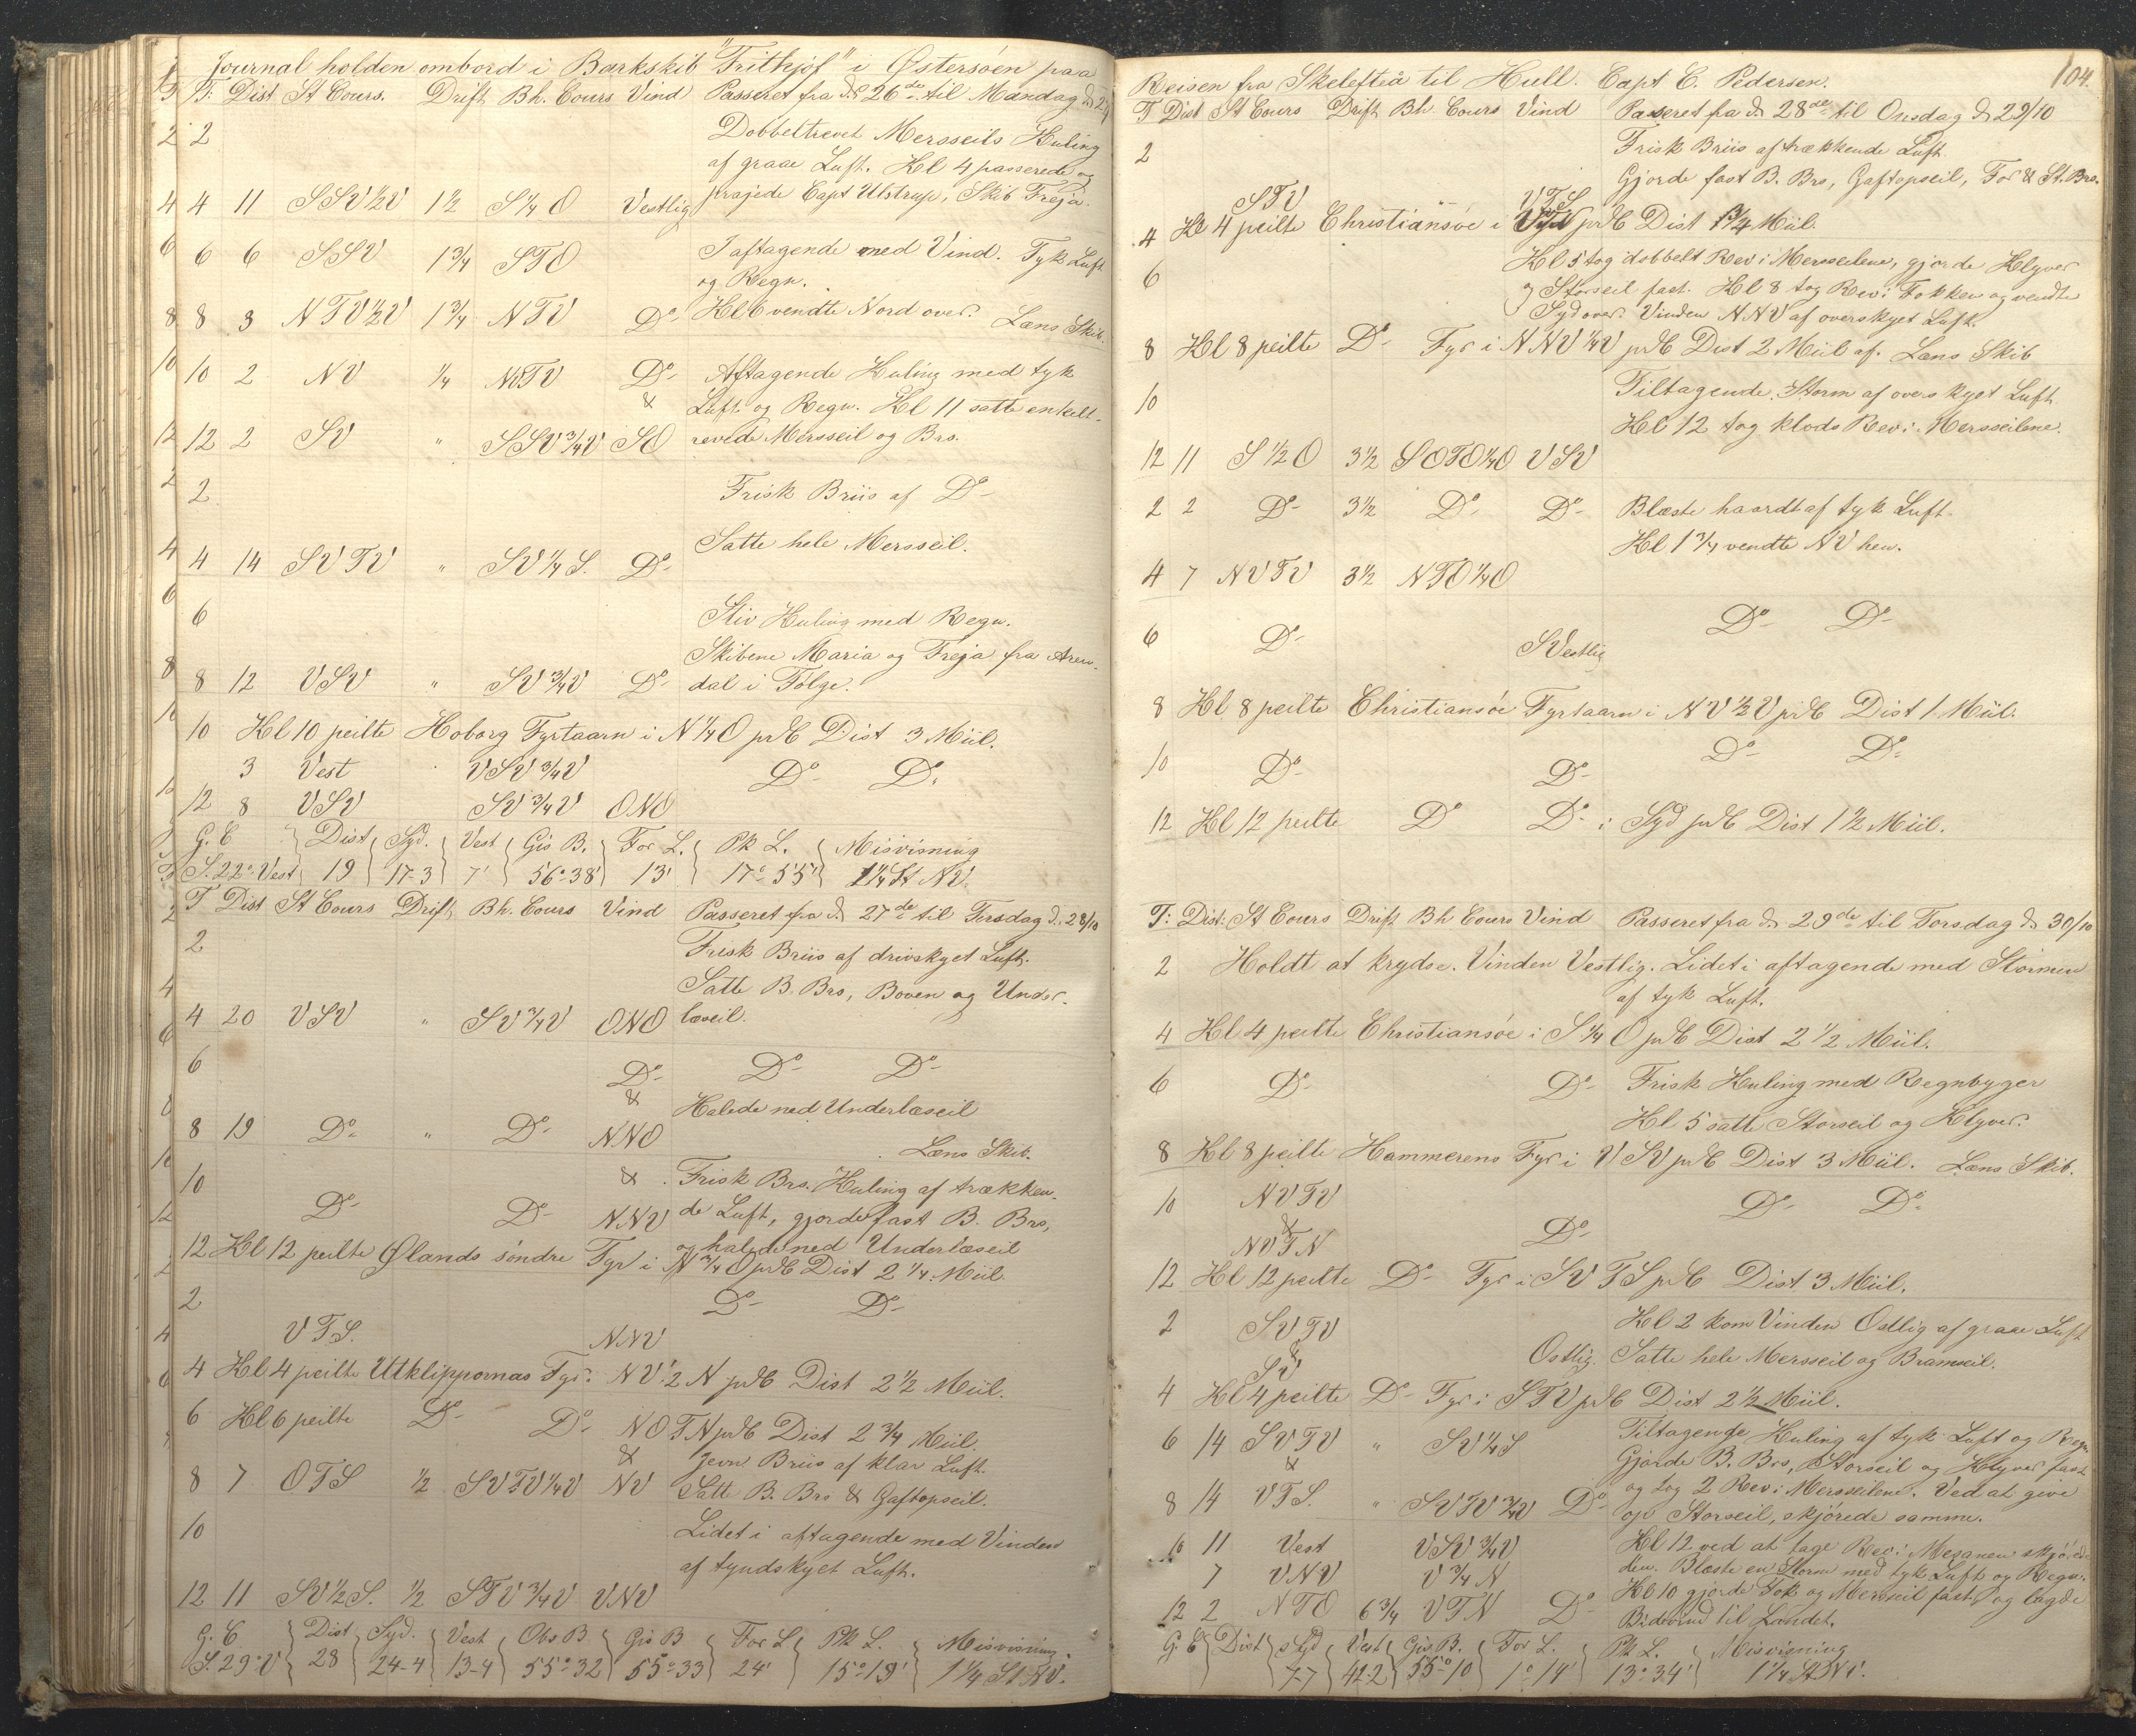 Journal holden ombord i Barkskib "Frithjof" i Østersøen paa
T: Dist St Cours. Drift Bh. Cours Vind Passeret fra d. 26de til Mandag d. 27
2 Dobbeltrevet Mersseils Kuling
af graae Luft. Kl 4 passerede og
4 11 SSV½V 1½ S¼O Vestlig prajede Capt Ulstrup, Skib Freja.
6 6 SSV 1¾ STO I aftagende med Vind. Tyk Luft
og Regn.
8 3 NTV½V 1¾ NTV Do Kl 6 vendte Nord over. Læns Skib.
10 2 NV ¼ NTV Do Aftagende Kuling med tyk
& Luft og Regn. Kl 11 satte enkelt-
12 2 SV " SSV¾V SO revede Mersseil og Brs.
2 Frisk Briis af Do
Satte hele Mersseil.
4 14 SVTV " SV¼S. Do
6 Stiv Kuling med Regn.
Skibene Maria og Freja fra Aren-
8 12 VSV " SV¾V Do dal i Følge.
10 Kl 10 peilte Hoborg Fyrtaarn i N¼O prC Dist 3 Miil.
3 Vest VSV¾V Do Do
12 8 VSV SV¾V ONO
G. C Dist Syd. Vest Gis B. For L. Pk L. Misvisning
S. 22° Vest 19 17-3 7' 56°38' 13' 17°55' 1¼ St NV.
T Dist St Cours Drift Bh. Cours Vind Passeret fra d. 27de til Tirsdag d. 28/10
2 Frisk Briis af drivskyet Luft.
Satte B. Brs, Boven og Under-
4 20 VSV " SV¾V ONO læseil.
6 Do Do Do
& Halede ned Underlæseil
8 19 Do " Do NNO
Læns Skib.
10 & Frisk Brs. Kuling af trækken-
Do Do NNV de Luft, gjorde fast B. Brs,
og halede ned Underlæseil
12 Kl 12 peilte Ølands söndre Fyr i N¾O prC Dist 2¼ Miil.
2 Do Do
VTS. NNV
4 Kl 4 peilte Utklippornas Fyr i NV½N prC Dist 2½ Miil.
6 Kl 6 peilte Do Do NOTN prC Dist 2¾ Miil.
& Jevn Briis af klar Luft.
8 7 OTS ½ SVTV¼V NV Satte B. Brs & Gaftopseil.
10 Lidet i aftagende med Vinden
af tyndskyet Luft.
12 11 SV½S. ½ STV¾V VNV
G. C Dist Syd. Vest Obs B Gis B For L Pk L. Misvisning
S. 29° V 28 24-4 13-4 55°32 55°33 24' 15°19' 1¼ St NV.
104.
Reisen fra Skelefteå til Hull. Capt C. Pedersen.
T Dist St Cours Drift Bh. Cours Vind Passeret fra d. 28de til Onsdag d. 29/10
2 Frisk Briis af trækkende Luft.
Gjorde fast B. Brs, Gaftopseil, For & St. Brs.
STV VTS
4 Kl 4 peilte Christiansöe i prC Dist 1¾ Miil.
Kl 5 tog dobbelt Rev i Mersseilene, gjorde Klyver
6 og Storseil fast. Kl 8 tog Rev i Fokken og vendte
Sydover. Vinden NNV af overskyet Luft.
8 Kl 8 peilte Do Fyr i NNV¼V prC Dist 2 Miil af. Læns Skib
10 Tiltagende Storm af overskyet Luft
Kl 12 tog klods Rev i Mersseilene.
12 11 S½O 3½ SOTO¼O VSV
2 2 Do 3½ Do Do Blæste haardt af tyk Luft.
Kl 1¾ vendte NV hen.
4 7 NVTV 3½ NTO¼O
Do Do
6 Do SVestlig
8 Kl 8 peilte Christiansöe Fyrtaarn i NV½V prC Dist 1 Miil.
10 Do Do Do Do
12 Kl 12 peilte Do Do i Syd prC Dist 1½ Miil.
T: Dist: St Cours Drift Bh Cours Vind Passeret fra d. 29de til Torsdag d. 30/10
2 Holdt at krydse. Vinden Vestlig. Lidet i aftagende med Stormen
af tyk Luft.
4 Kl 4 peilte Christiansöe i S¼O prC Dist 2½ Miil.
6 Do Do Frisk Kuling med Regnbyger
Kl 5 satte Storseil og Klyver.
8 Kl 8 peilte Hammerens Fyr i VSV prC Dist 3 Miil. Læns Skib.
10 NVTV Do Do
& Do
NVTN
12 Kl 12 peilte Do Fyr i SVTS prC Dist 3 Miil.
2 SVTV Kl 2 kom Vinden Ostlig af graae Luft
& Ostlig. Satte hele Mersseil og Bramseil.
SV
4 Kl 4 peilte Do Fyr i STV prC Dist 2½ Miil.
6 14 SVTV " SV¼S Tiltagende Kuling af tyk Luft og Regn.
& Gjorde B. Brs, Storseil og Klyver fast
8 14 VTS. " SVTV¾V Do og tog 2 Rev i Mersseilene. Ved at give
op Storseil, skjörede samme.
10 11 Vest VSV¾V Kl 12 ved at tage Rev i Mesanen skjörede
7 VNV V¾N den. Blæste en Storm med tyk Luft og Regn.
12 2 NTO 6¾ VTN Do Kl 10 gjorde Fok og Mersseil fast og lagde
Bidevind til Landet.
G. C Dist Syd Vest Gis B. For L. Pk L. Misvisning
7-7 42-2 55°10 1°14' 13°34' 1¼ St NV.